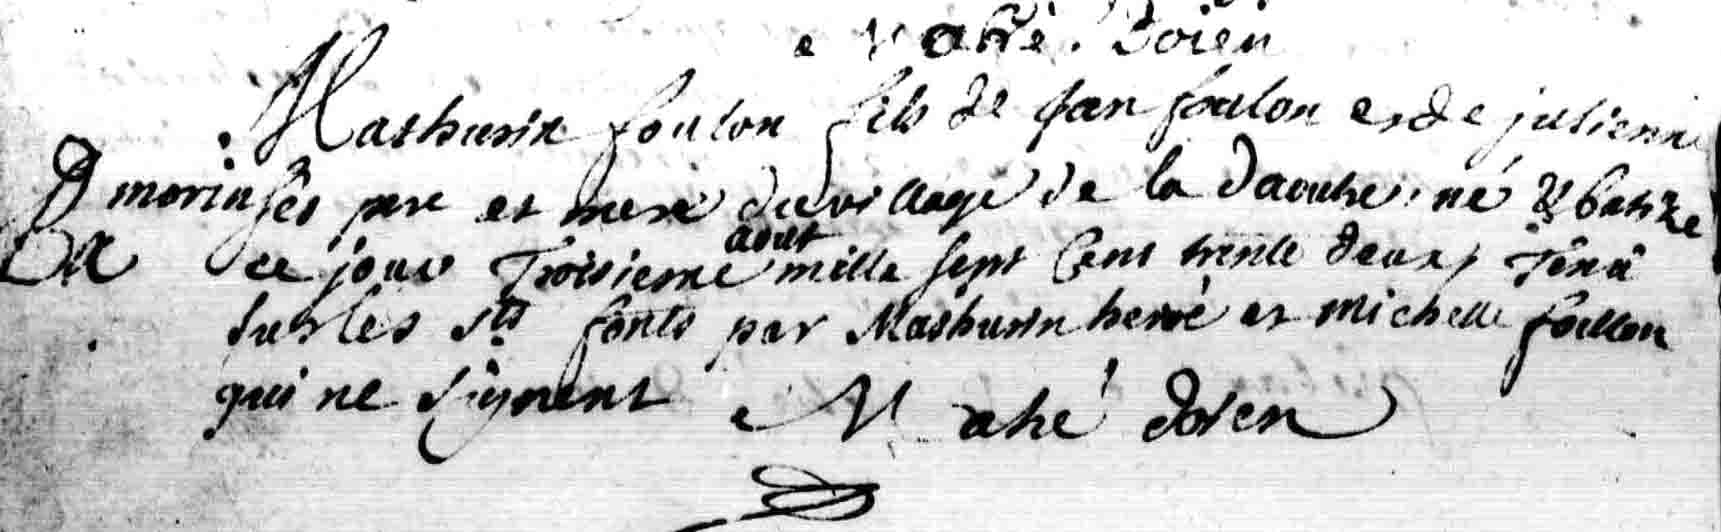 Mahé . Doien
Mathurin foulon fils de Jan foulon et de julienne
morin ses pere et mere du village de la Daoute, né & batize
ce jour Troisieme aoust mille sept Cent trente deux, Tenu
sur les sts fonts par Mathurin hervé et michelle foullon
qui ne signent Mahé doien